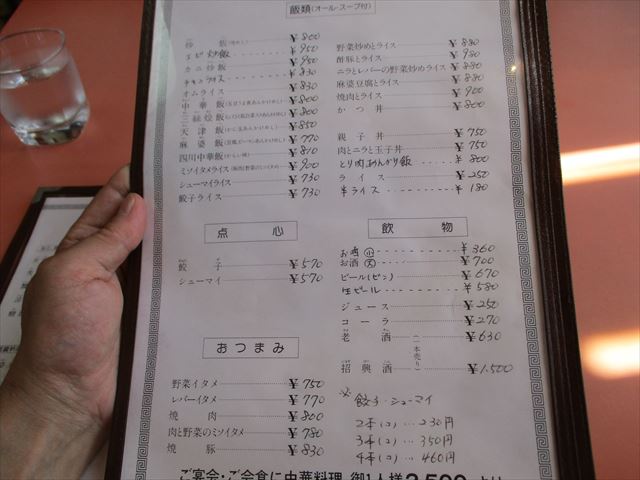 飯類(オール・スープ付)
炒飯 ¥800
エビ炒飯 ¥900
カニ炒飯 ¥900
チキンライス ¥830
オムライス ¥830
中華飯 ¥800
三絲燴飯 ¥800
天津飯 ¥850
麻婆飯 ¥770
四川中華飯 ¥810
ミソイタメライス ¥900
シューマイライス ¥730
餃子ライス ¥730
野菜炒めとライス ¥880
酢豚とライス ¥980
ニラとレバーの野菜炒めライス ¥880
麻婆豆腐とライス ¥880
焼肉とライス ¥900
かつ丼 ¥800
親子丼 ¥750
肉とニラと玉子丼 ¥750
とり肉あんかけ飯 ¥800
ライス ¥250
半ライス ¥180
点心
餃子 ¥570
シューマイ ¥570
おつまみ
野菜イタメ ¥750
レバーイタメ ¥770
焼肉 ¥800
肉と野菜のミソイタメ ¥780
焼豚 ¥830
飲物
お酒(小) ¥360
お酒(大) ¥700
ビール(ビン) ¥670
生ビール ¥580
ジュース ¥250
コーラ ¥270
老酒 ¥630
(一本売り)
招興酒 ¥1,500
※餃子・シューマイ
2本(コ)…230円
3本(コ)…350円
4本(コ)…460円
ご宴会・ご会食に中華料理 御1人様2,500より